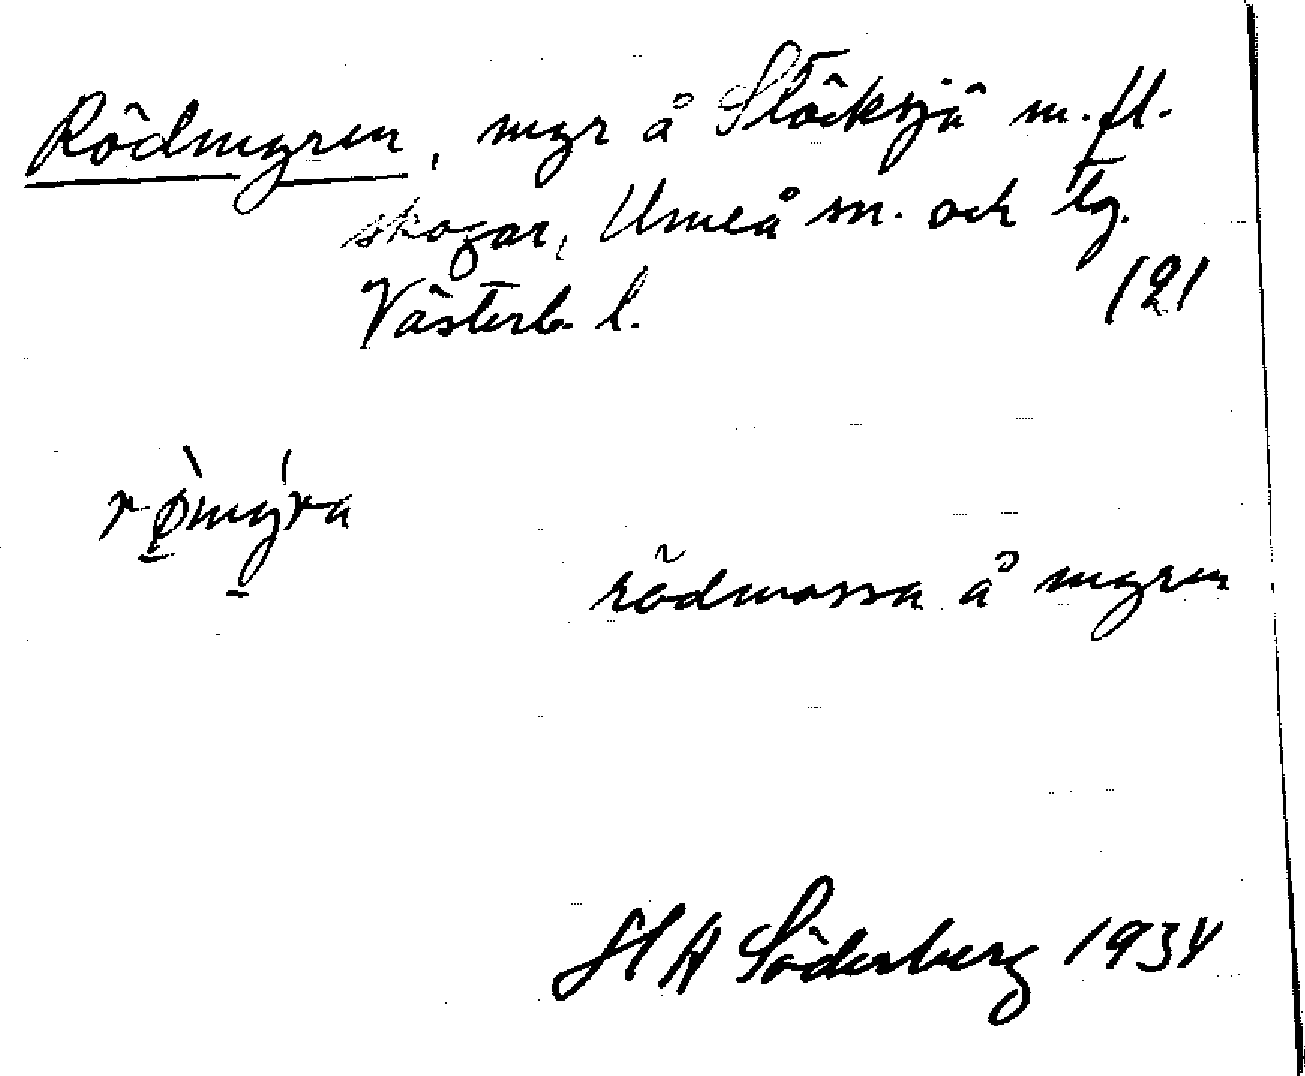 Rödmyren, myr å Stöcksjö m.fl.
skogar, Umeå sn. och tg.
Västerb. l. 121
rø̀mýra
rödmossa å myren
H A Söderberg 1934